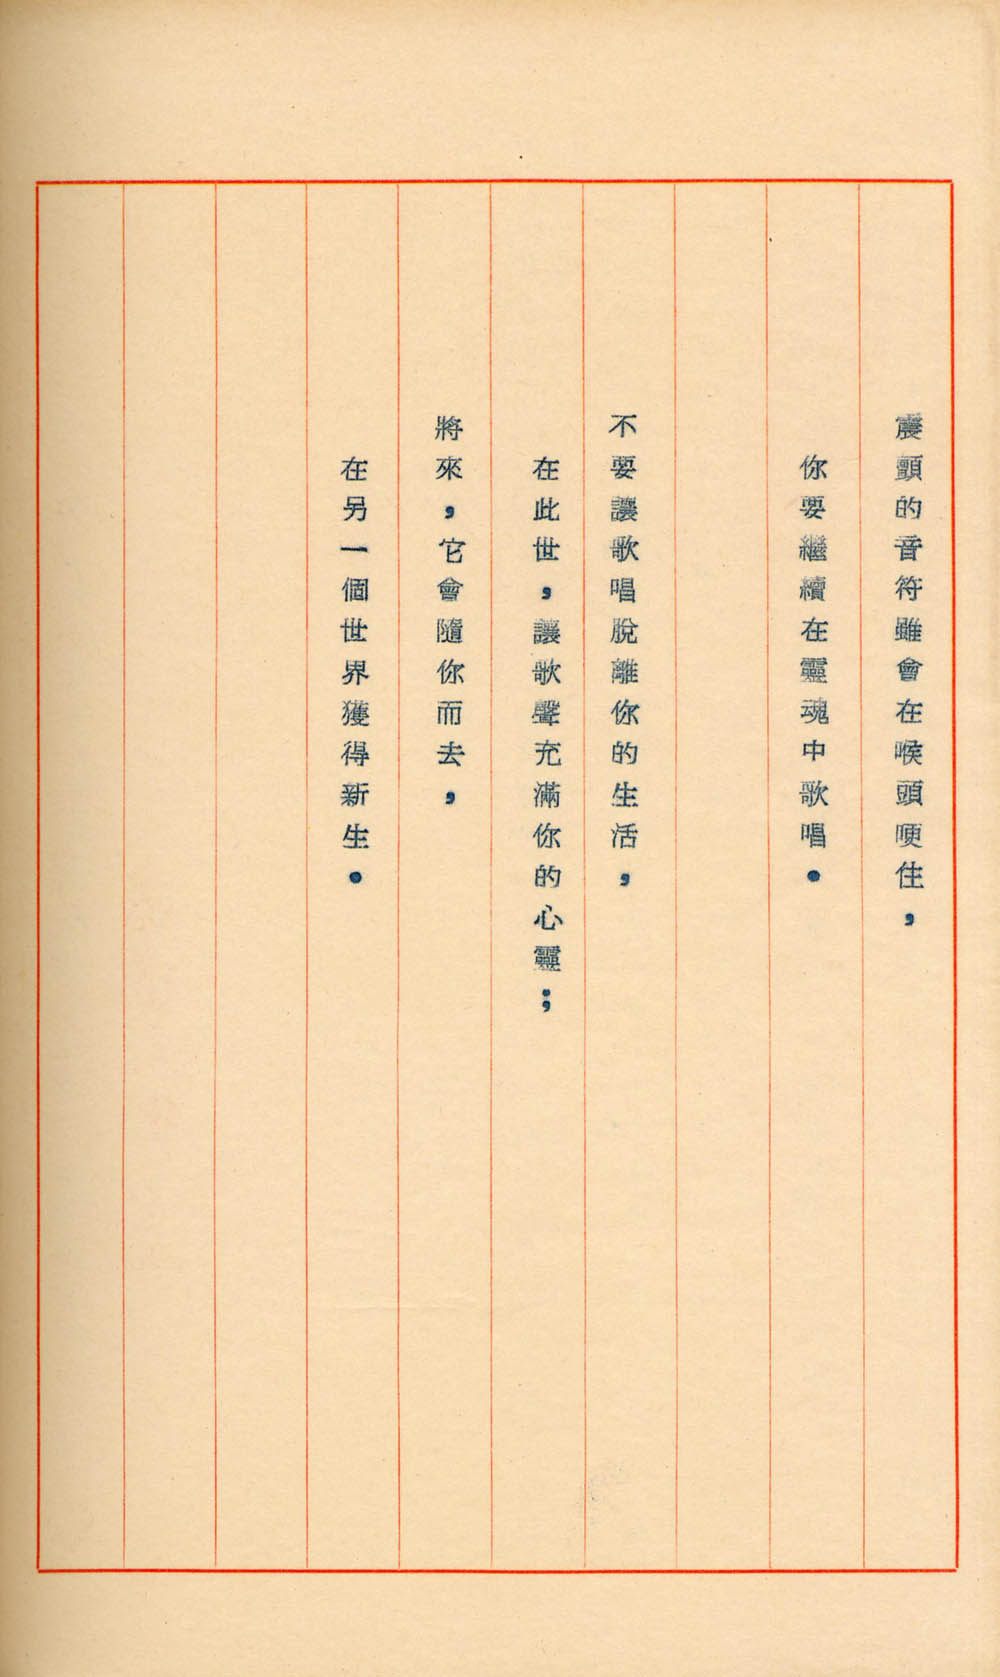 震顫的音符雖會在喉頭哽住，
你要繼續在靈魂中歌唱．
不要讓歌唱脫離你的生活，
在此世，讓歌聲充滿你的心靈；
將來，它會隨你而去，
在另一個世界獲得新生．